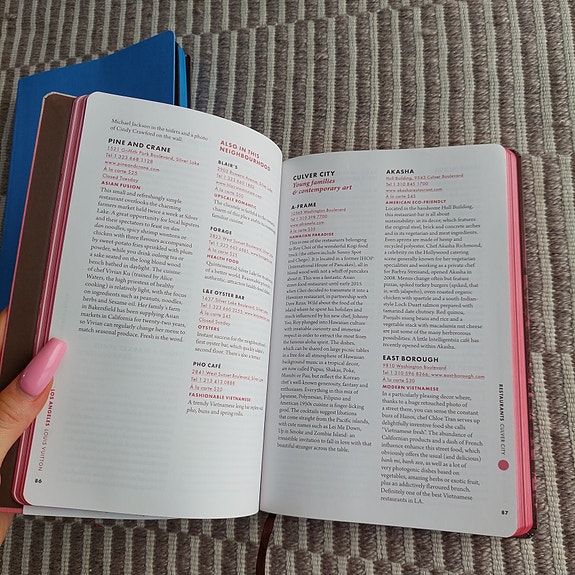 Michael Jackson in the toilets and a photo
of Cindy Crawford on the wall.
PINE AND CRANE
1521 Griffith Park Boulevard, Silver Lake
Tel: 1 323 668 1128
www.pineandcrane.com
À la carte $25
Closed Tuesday
ASIAN FUSION
This small and refreshingly simple
restaurant overlooks the charming
farmers market held twice a week at Silver
Lake. A great opportunity for local hipsters
and their spectators to feast on
dan dan
noodles, spicy shrimp wontons
chicken with three flavours accompanied
by sweet potato fries sprinkled with plum
powder, while you cool off with
a sake seated on the long blond wood
bench bathed in daylight. The cuisine
of chef Vivian Ku (trained by Alice
Waters, the high priestess of healthy
cooking) is relatively light, with the focus
on ingredients such as peanuts, noodles,
herbs and sesame oil. Her family's farm
in Bakersfield has been supplying Asian
markets in California for twenty-two years,
so Vivian can regularly change her menu to
match seasonal produce. Fresh is the word.
86
LOS ANGELES LOUIS VUITTON
ALSO IN THIS
NEIGHBOURHOOD
BLAIR'S
2903 Rowena Avenue, Silver Lake
UPSCALE ROMANTIC
FORAGE
3823 West Sunset Boulevard, Silver Lake
À la carte $20
HEALTH FOOD
L&E OYSTER BAR
1637 Silver Lake Boulevard, Silver Lake
À la carte $35
Closed Sunday
OYSTERS
Instant success for the neighbourhood's
first oyster bar, which
second floor. That's also a treat.
PHO CAFÉ
2841 West Sunset Boulevard, Silver Lake
Tel: 1 213 413 0888
À la carte $20
FASHIONABLE VIETNAMESE
A trendy Vietnamese long bar
pho, buns and spring rolls.
CULVER CITY
Young families
& contemporary art
A-FRAME
12565 Washington Boulevard
Tel: 1 310 398 7700
www.aframela.com
À la carte $35
HAWAIIAN PARADISE
This is one of the restaurants belonging
to Roy Choi of the wonderful Kogi food
truck (the others include Sunny Spot
and Chego). It is located in a former IHOP
(International House of Pancakes), all in
blond wood with not a whiff of pancakes
about it. This was a fantastic Asian
street food restaurant until early 2015
when Choi decided to transform it into a
Hawaiian restaurant, in partnership with
Dave Reiss. Wild about the food of the
island where he spent his holidays and
much influenced by his new chef, Johnny
Yoo, Roy plunged into Hawaiian culture
with insatiable curiosity and immense
respect in order to extract the most from
the famous aloha spirit. The dishes,
which can be shared on large picnic tables
in a free for all atmosphere of Hawaiian
background music in a tropical decor,
are now called Pupus, Shakas, Poke,
Musubi or Pau, but reflect the Korean
chef's well known generosity, fantasy and
enthusiasm. Everything in this mix of
Japanese, Polynesian, Filipino and
American 1950s cuisine is finger-licking
good. The cocktails suggest libations
that come straight from the Pacific islands,
with cute names such as Let Me Down,
Up in Smoke and Zombie Island: an
irresistible invitation to fall in love with that
beautiful stranger across the table.
AKASHA
Hull Building, 9543 Culver Boulevard
Tel: 1 310 845 1700
www.akasharestaurant.com
À la carte $45
AMERICAN ECO-FRIENDLY
Located in the handsome Hull Building,
this restaurant-bar is all about
sustainability: in its decor, which features
the original steel, brick and concrete arches
and in its vegetarian and meat ingredients.
Even aprons are made of hemp and
recycled polyester. Chef Akasha Richmond,
a celebrity on the Hollywood catering
scene generally known for her vegetarian
specialities and working as a private chef
for Barbra Streisand, opened Akasha in
2008. Menus change often but feature
pizzas, spiked turkey burgers (spiked, that
is, with jalapeños), oven roasted organic
chicken with spaetzle and a south-Indian-
style Loch Duart salmon prepared with
tamarind date chutney. Red quinoa,
Punjabi mung beans and rice and a
vegetable stack with macadamia nut cheese
are just some of the many herbivorous
possibilities. A little Intelligentsia café has
recently opened within Akasha.
EAST BOROUGH
9810 Washington Boulevard
Tel: 1 310 596 8266, www.east-borough.com
À la carte $30
MODERN VIETNAMESE
In a particularly pleasing decor where,
thanks to a huge retouched photo of
a street there, you can sense the constant
buzz of Hanoi, chef Chloe Tran serves up
delightfully inventive food she calls
"Vietnamese fresh". The abundance of
Californian products and a dash of French
influence enhance this street food, which
obviously offers the usual (and delicious)
banh mi, banh xeo, as well as a lot of
very photogenic dishes based on
vegetables, amazing herbs or exotic fruit,
plus an addictively flavoured brunch.
Definitely one of the best Vietnamese
restaurants in LA.
RESTAURANTS CULVER CITY
87